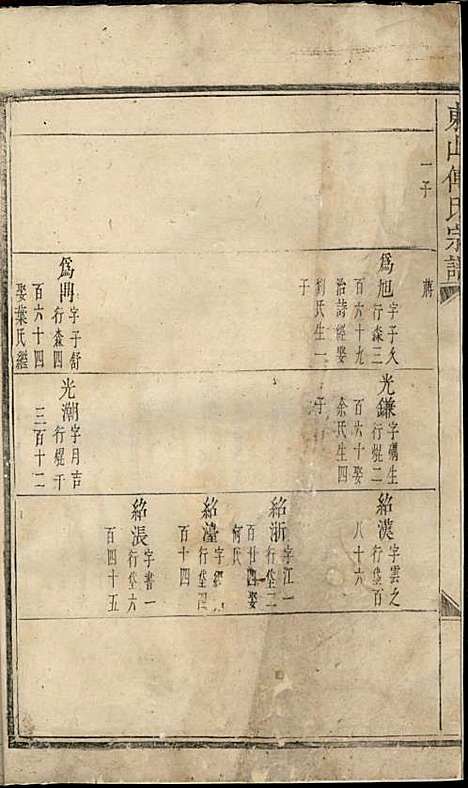 東山傅氏宗譜
蔣
一子
為旭字子久
行森三
百六十九
治詩經娶
劉氏生一
子
為開字子舒
行森四
百六十四
娶葉氏繼
光鏮字礪生
行棍二
百六十娶
余氏生四
子
光潮字月吉
行棍于
三百十二
紹漢字雲之
行堂百
八十六
紹浙字江一
行堂二
百廿四娶
何氏
紹瀍字經
行堂四
百十四
紹漲字書一
行堂六
百四十五